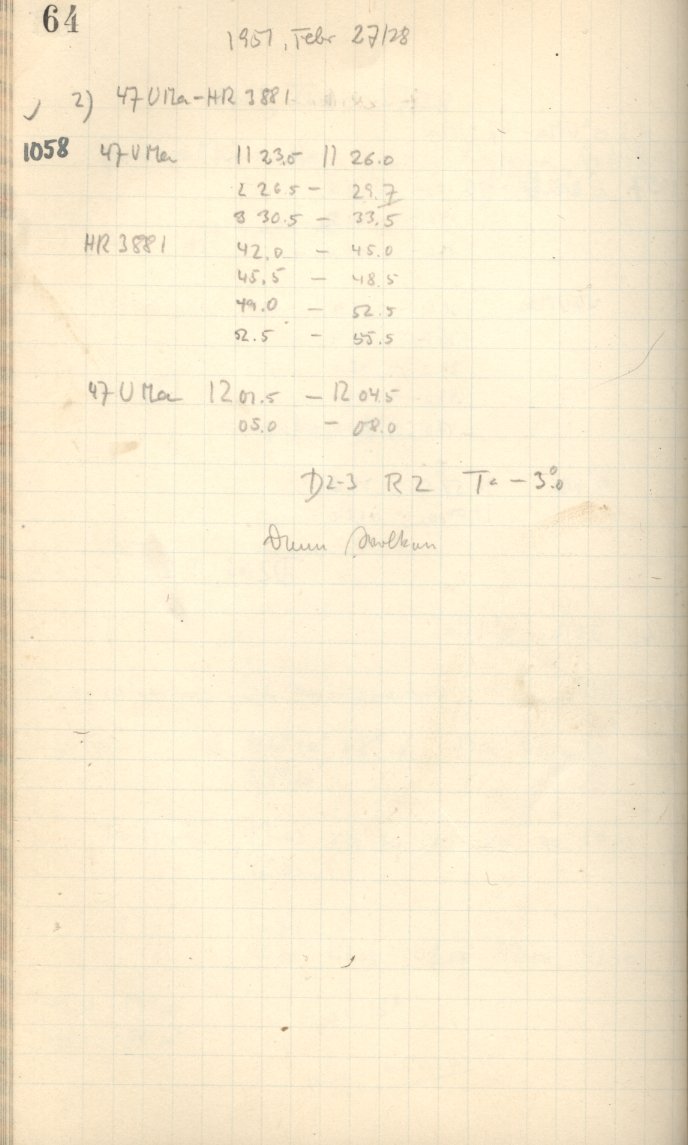 64
1951, Febr 27/28
2) 47 UMa - HR 3881
1058 47 UMa 11 23.5 11 26.0
2 26.5 - 29.7
3 30.5 - 33.5
HR 3881 42.0 - 45.0
45.5 - 48.5
49.0 - 52.5
52.5 - 55.5
47 UMa 12 01.5 - 12 04.5
05.0 - 08.0
D2-3 R2 T= -3°.0